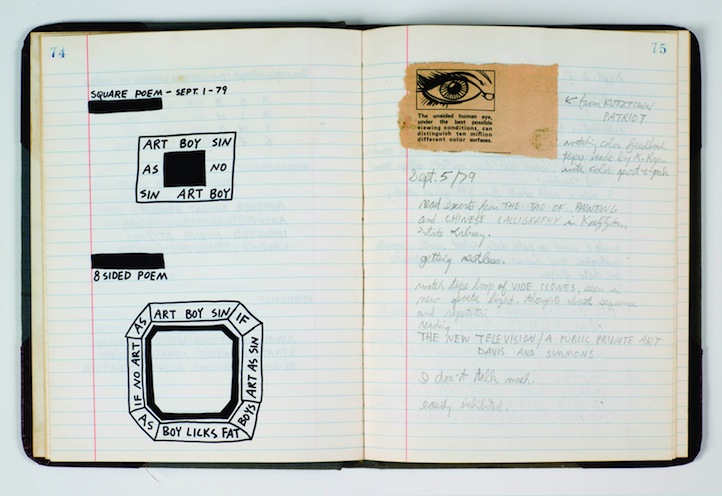 74
SQUARE POEM – SEPT. 1-79
ART BOY SIN
AS NO
SIN ART BOY
8 SIDED POEM
AS ART BOY SIN IF
IF NO ART
ART AS SIN
AS BOY LICKS FAT BOYS
75
The unaided human eye,
under the best possible
viewing conditions, can
distinguish ten million
different color surfaces.
← from KUTZTOWN
PATRIOT
watching color feedback
tapes made by K.
with color
Sept. 5/79
read from THE TAO OF PAINTING
and CHINESE CALLIGRAPHY in Kutztown
State Library.
getting restless.
watch tape loop of VIDEO CLONES, seen in
new poetic light. thoughts about sequence
and repetition
reading
THE NEW TELEVISION / A PUBLIC PRIVATE ART
DAVIS AND SIMMONS
I don't talk much.
easily inhibited.